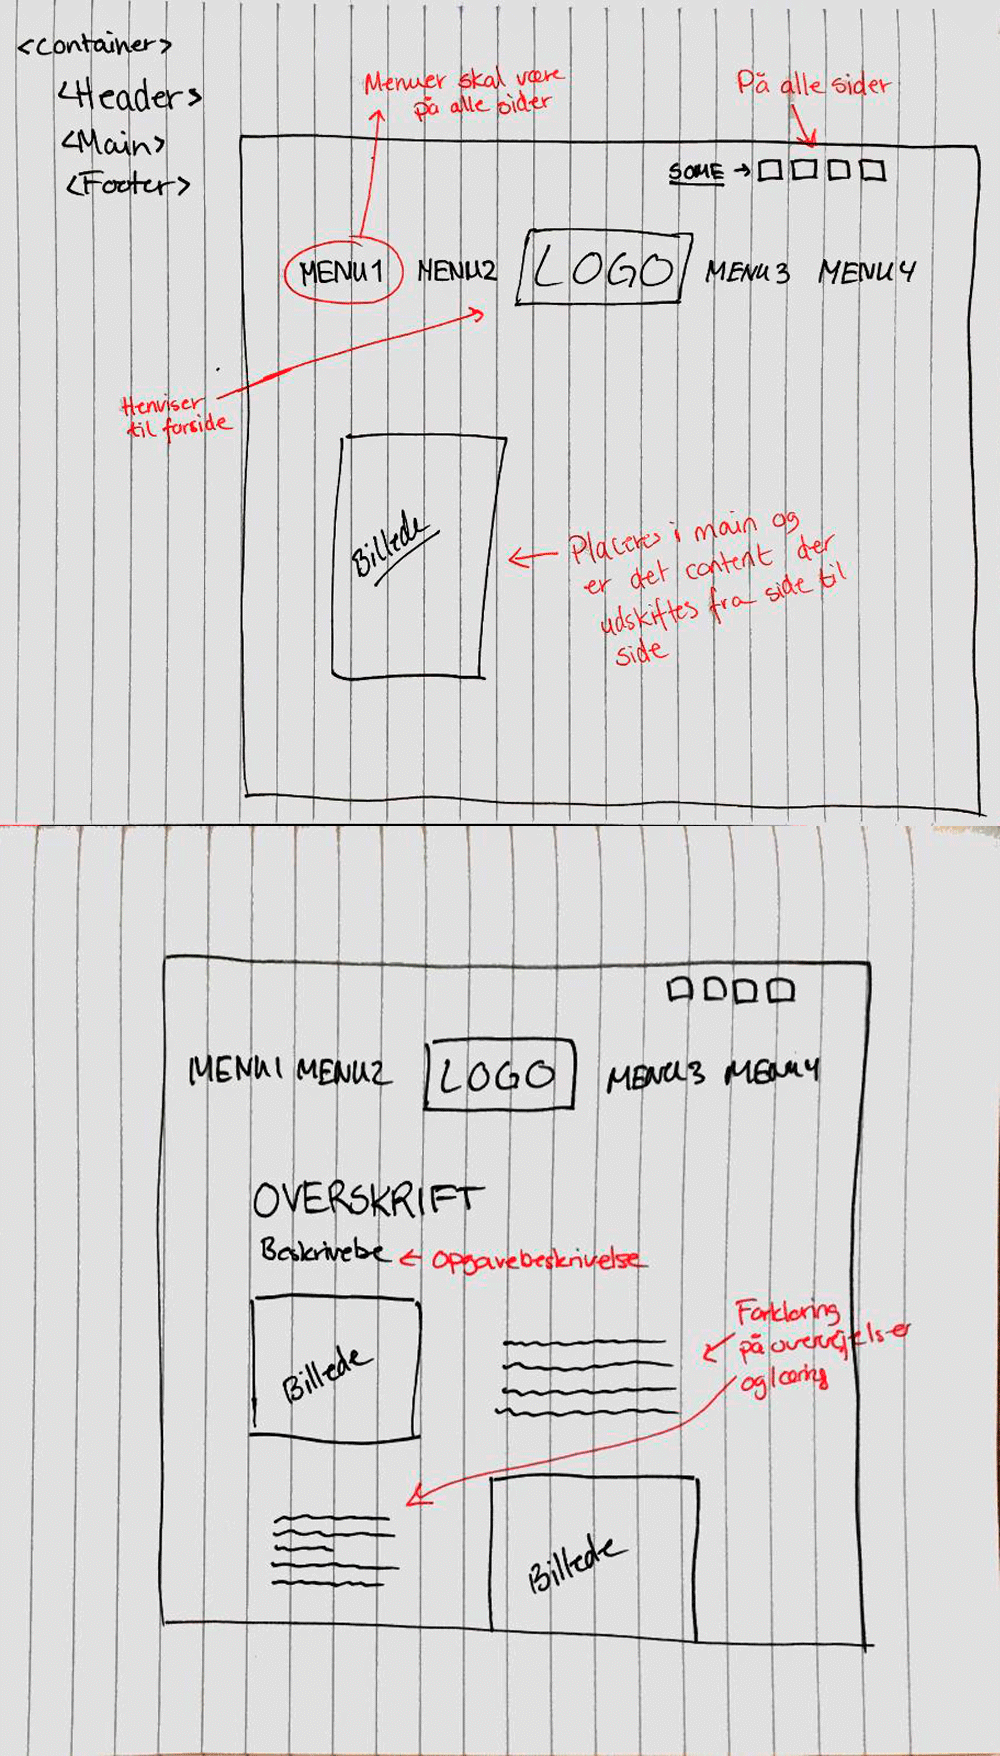 <Container>
<Header>
<Main>
<Footer>
Menuer skal være
på alle sider
På alle sider
SOME →
MENU1 MENU2 LOGO MENU3 MENU4
Henviser
til forside
Billede
Placeres i main og
er det content der
udskiftes fra side til
side
MENU1 MENU2 LOGO MENU3 MENU4
OVERSKRIFT
Beskrivelse ← Opgavebeskrivelse
Billede
Forklaring
på overvejelser
og læring
Billede